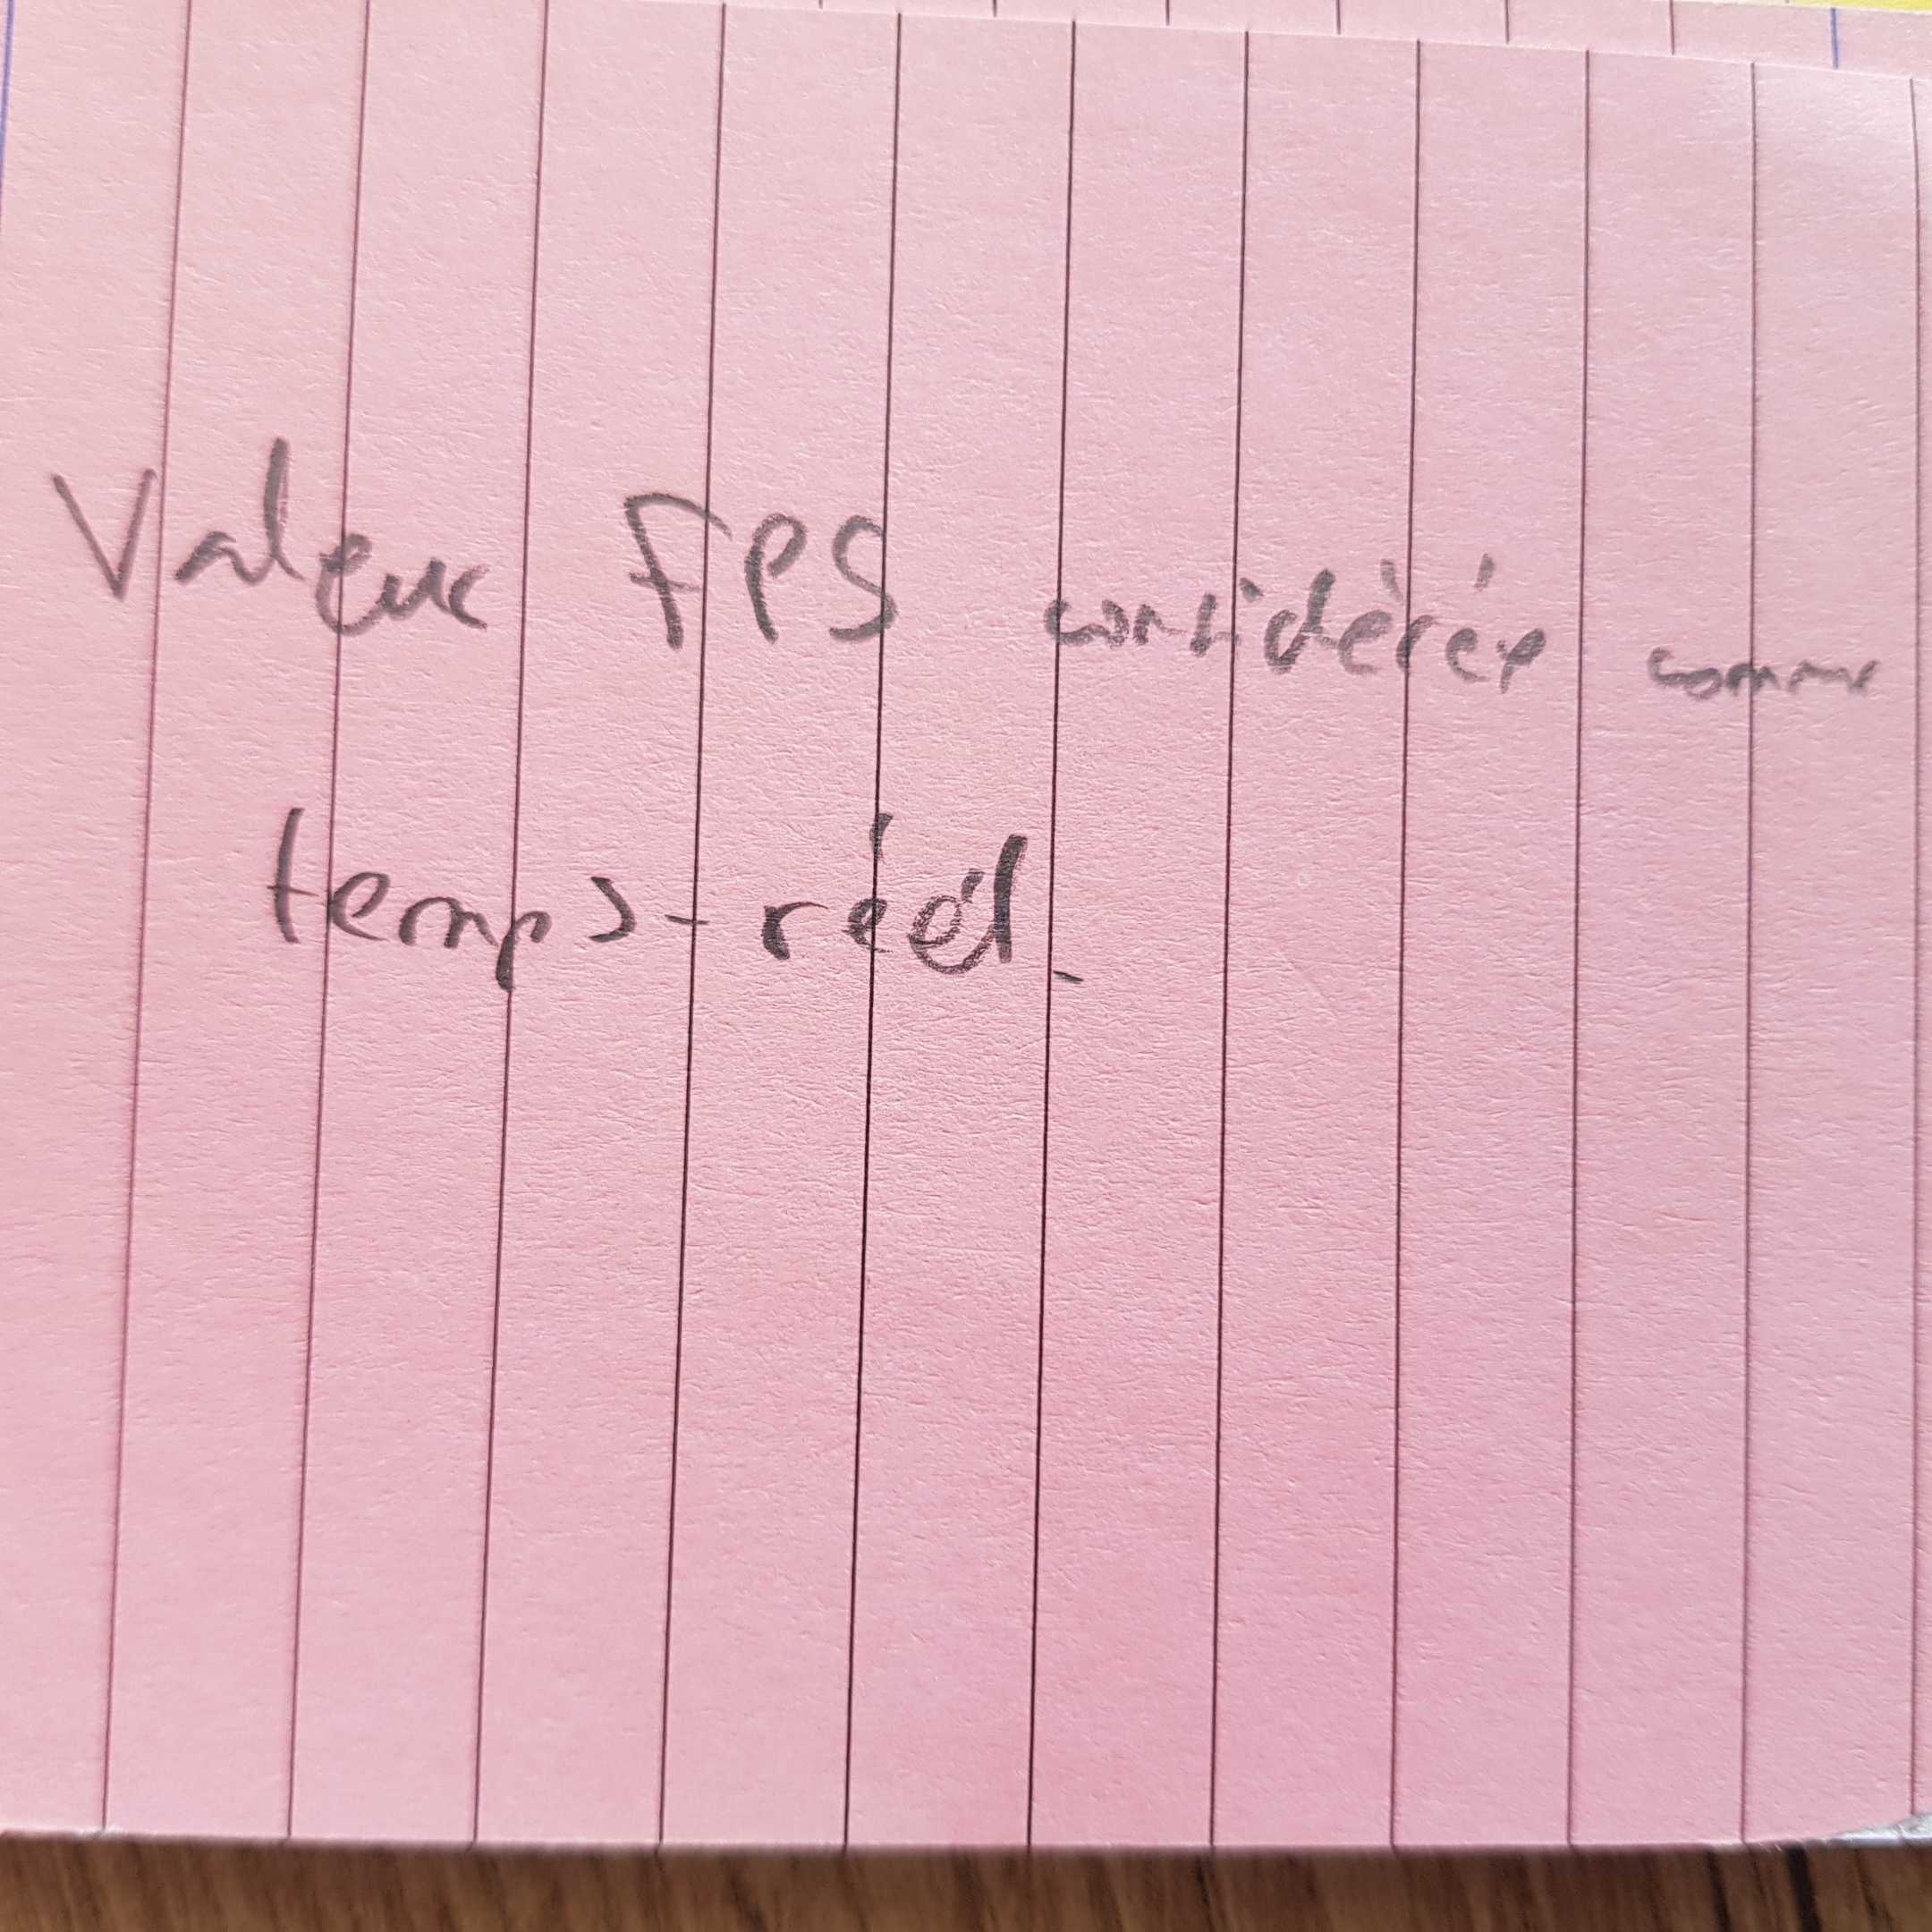 Valeur FPS considérée comme
temps-réel.